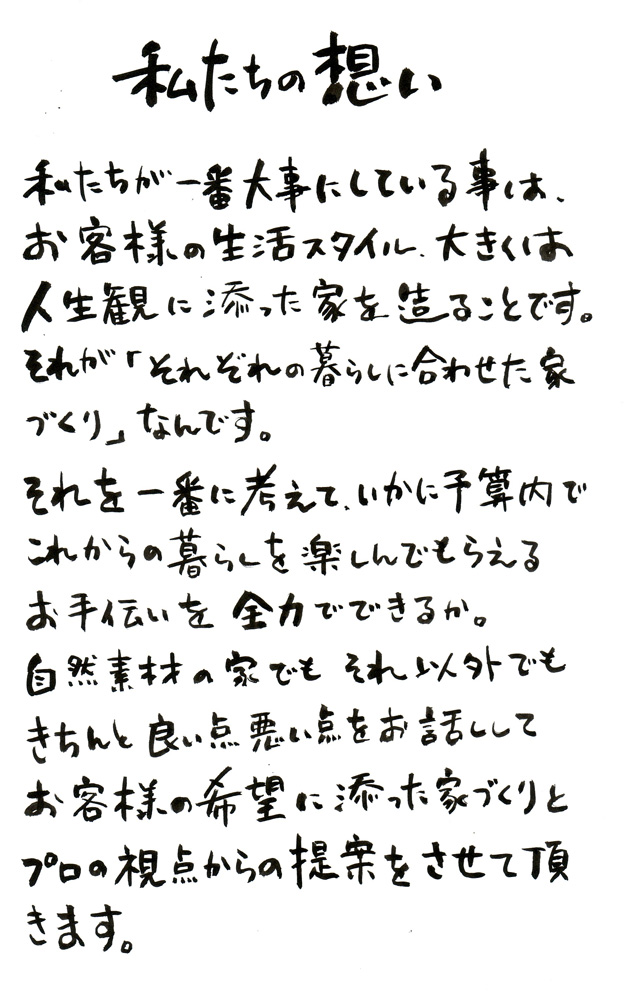 私たちの想い
私たちが一番大事にしている事は、
お客様の生活スタイル、大きくは
人生観に添った家を造ることです。
それが「それぞれの暮らしに合わせた家
づくり」なんです。
それを一番に考えて、いかに予算内で
これからの暮らしを楽しんでもらえる
お手伝いを全力でできるか。
自然素材の家でもそれ以外でも
きちんと良い点悪い点をお話しして
お客様の希望に添った家づくりと
プロの視点からの提案をさせて頂
きます。